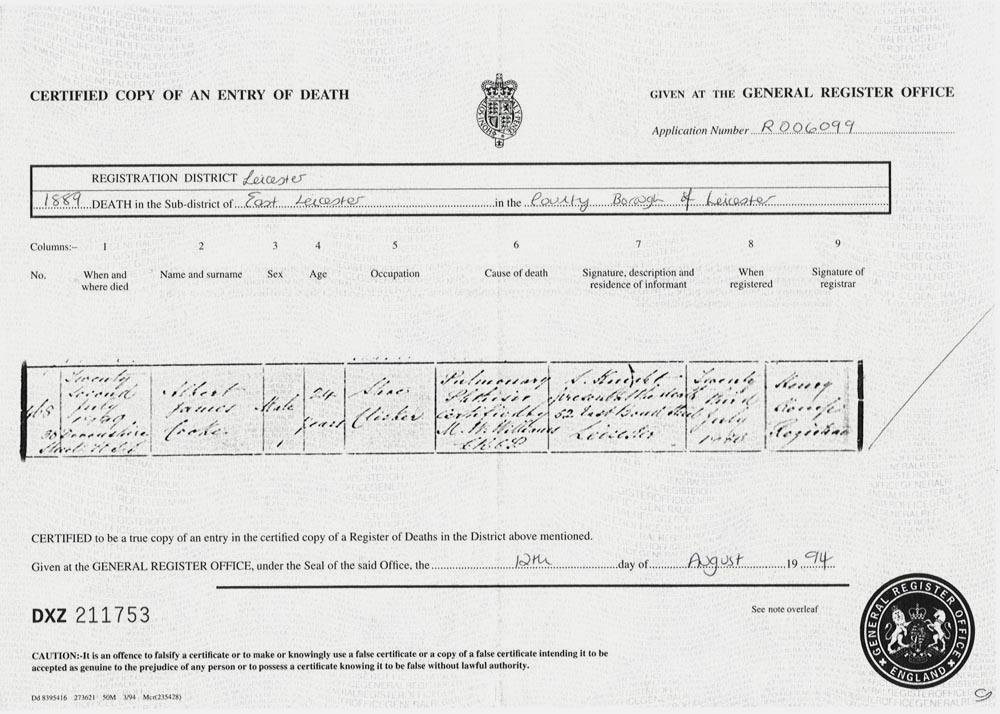 CERTIFIED COPY OF AN ENTRY OF DEATH
GIVEN AT THE GENERAL REGISTER OFFICE
Application Number R006099
REGISTRATION DISTRICT Leicester
1889 DEATH in the Sub-district of East Leicester in the County Borough of Leicester
Columns:– 1 2 3 4 5 6 7 8 9
No. When and Name and surname Sex Age Occupation Cause of death Signature, description and When Signature of
where died residence of informant registered registrar
Twenty Albert Shoe Pulmonary S. Knight Twenty Henry
Second James Male 24 Clicker Phthisis present at the death third
July Cooke years Certified by 52 East Bond Street July Registrar
1889 M. W. Williams Leicester
Street
CERTIFIED to be a true copy of an entry in the certified copy of a Register of Deaths in the District above mentioned.
Given at the GENERAL REGISTER OFFICE, under the Seal of the said Office, the 12th day of August 19 94
DXZ 211753
See note overleaf
CAUTION:-It is an offence to falsify a certificate or to make or knowingly use a false certificate or a copy of a false certificate intending it to be
accepted as genuine to the prejudice of any person or to possess a certificate knowing it to be false without lawful authority.
Dd 8395416 273621 50M 3/94 Mcr(235428)
GENERAL REGISTER OFFICE
ENGLAND